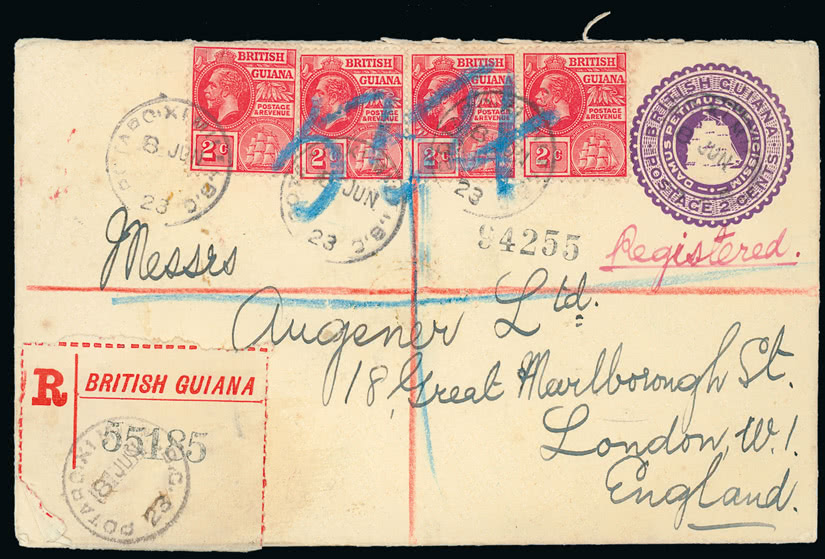 BRITISH GUIANA
POSTAGE & REVENUE
2c
BRITISH GUIANA
POSTAGE & REVENUE
2c
BRITISH GUIANA
POSTAGE & REVENUE
2c
BRITISH GUIANA
POSTAGE & REVENUE
2c
BRITISH GUIANA
POSTAGE 2 CENTS
DAMUS PETIMUSQUE VICISSIM
8 JUN
23
JUN
23
23
JUN
94255
Registered.
Messrs
Augener Ltd.
18, Great Marlborough St.
London, W.1.
England.
R
BRITISH GUIANA
55185
POTARO
8 JUN
23